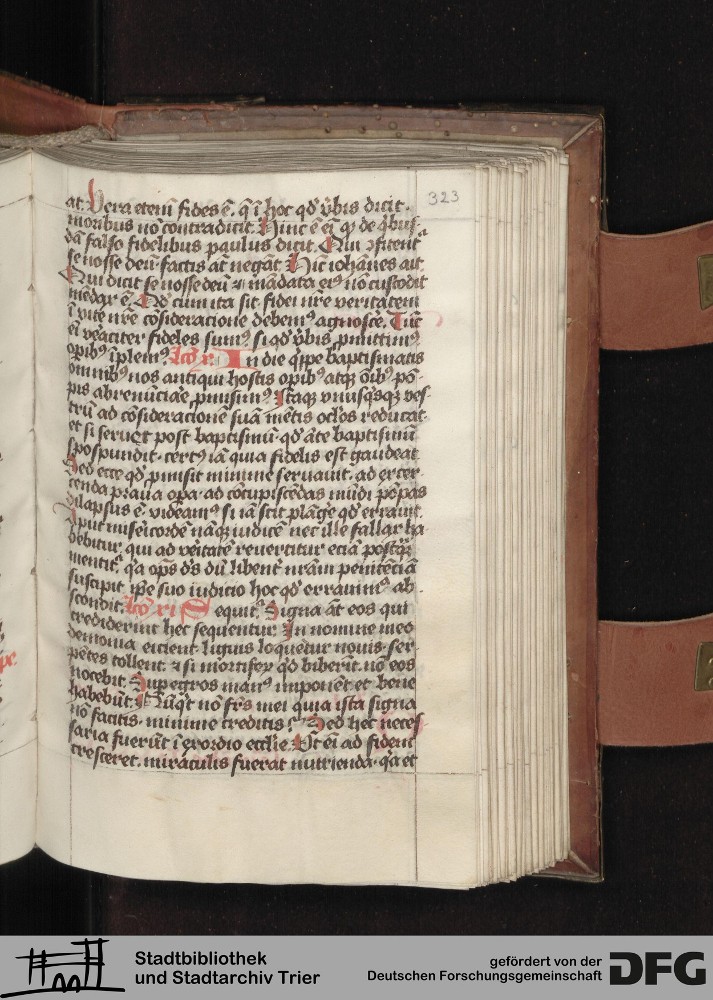 323
at. Vera etenī fides ē. q̄ ī hoc qd̄ v̄bis dicit.
moribus nō contradicit. Hinc ē eī qꝫ de q̄bus
dā falso fidelibus paulus dicit. Qui ꝯfitentᷣ
se nosse deū. factis āt negāt. Hīc iohānes ait.
Qui dicit se nosse deū ⁊ mādata eiꝰ nō custodit
mēdax ē. Qd̄ cum ita sit. fidei nr̄e veritatem
ī vite nr̄e cōsideracione debemꝰ agnosce. Tūc
eī v̄aciter fideles sumꝰ si qd̄ v̄bis ꝓmittimꝰ
opibꝰ īplemꝰ. Lc̄o x. In die q̄ppe baptismatis
omnibꝰ nos antiqui hostis opibꝰ atqꝫ oībꝰ pō
pis abrenūciare ꝓmisimꝰ. Itaqꝫ vnusq̄sqꝫ ves
trū ad cōsideracionē suā mētis oc̄los reducat.
et si seruat post baptismū. qd̄ āte baptismū
spospondit. certꝰ iā quia fidelis est gaudeat
Sed ecce qd̄ ꝓmisit minime seruauit. ad exer
cenda praua oꝑa. ad cōcupiscēdas mūdi pōpas
dilapsus ē. videamꝰ si iā scit plāge qd̄ errauit.
Aput misericordē nāqꝫ iudicē nec ille fallax ha
bebitur. qui ad v̄itatē reuertitur eciā postqꝫ
mentitᷣ. q̄a op̄s ds̄ dū libent nr̄am penitēciā
suscipit. ip̄e suo iudicio hoc qd̄ erramꝰ ab
scondit. Lc̄o xi Sequitᷣ. Signa āt eos qui
crediderint hec sequentur. In nomine meo
demonia eicient. liguis loquetur nouis. ser
pētes tollent. ⁊ si mortiferꝫ qd̄ biberīt. nō eos
nocebit. Super egros manꝰ imponēt et bene
habebūt. Nūqt nō fr̄s mei quia ista signa
nō facitis. minime creditis? Sed hec neces
saria fuerūt ī exordio ecclīe. Ut eī ad fidem
cresceret. miraculis fuerat nutrienda. q̄a et
Stadtbibliothek
und Stadtarchiv Trier
gefördert von der
Deutschen Forschungsgemeinschaft
DFG